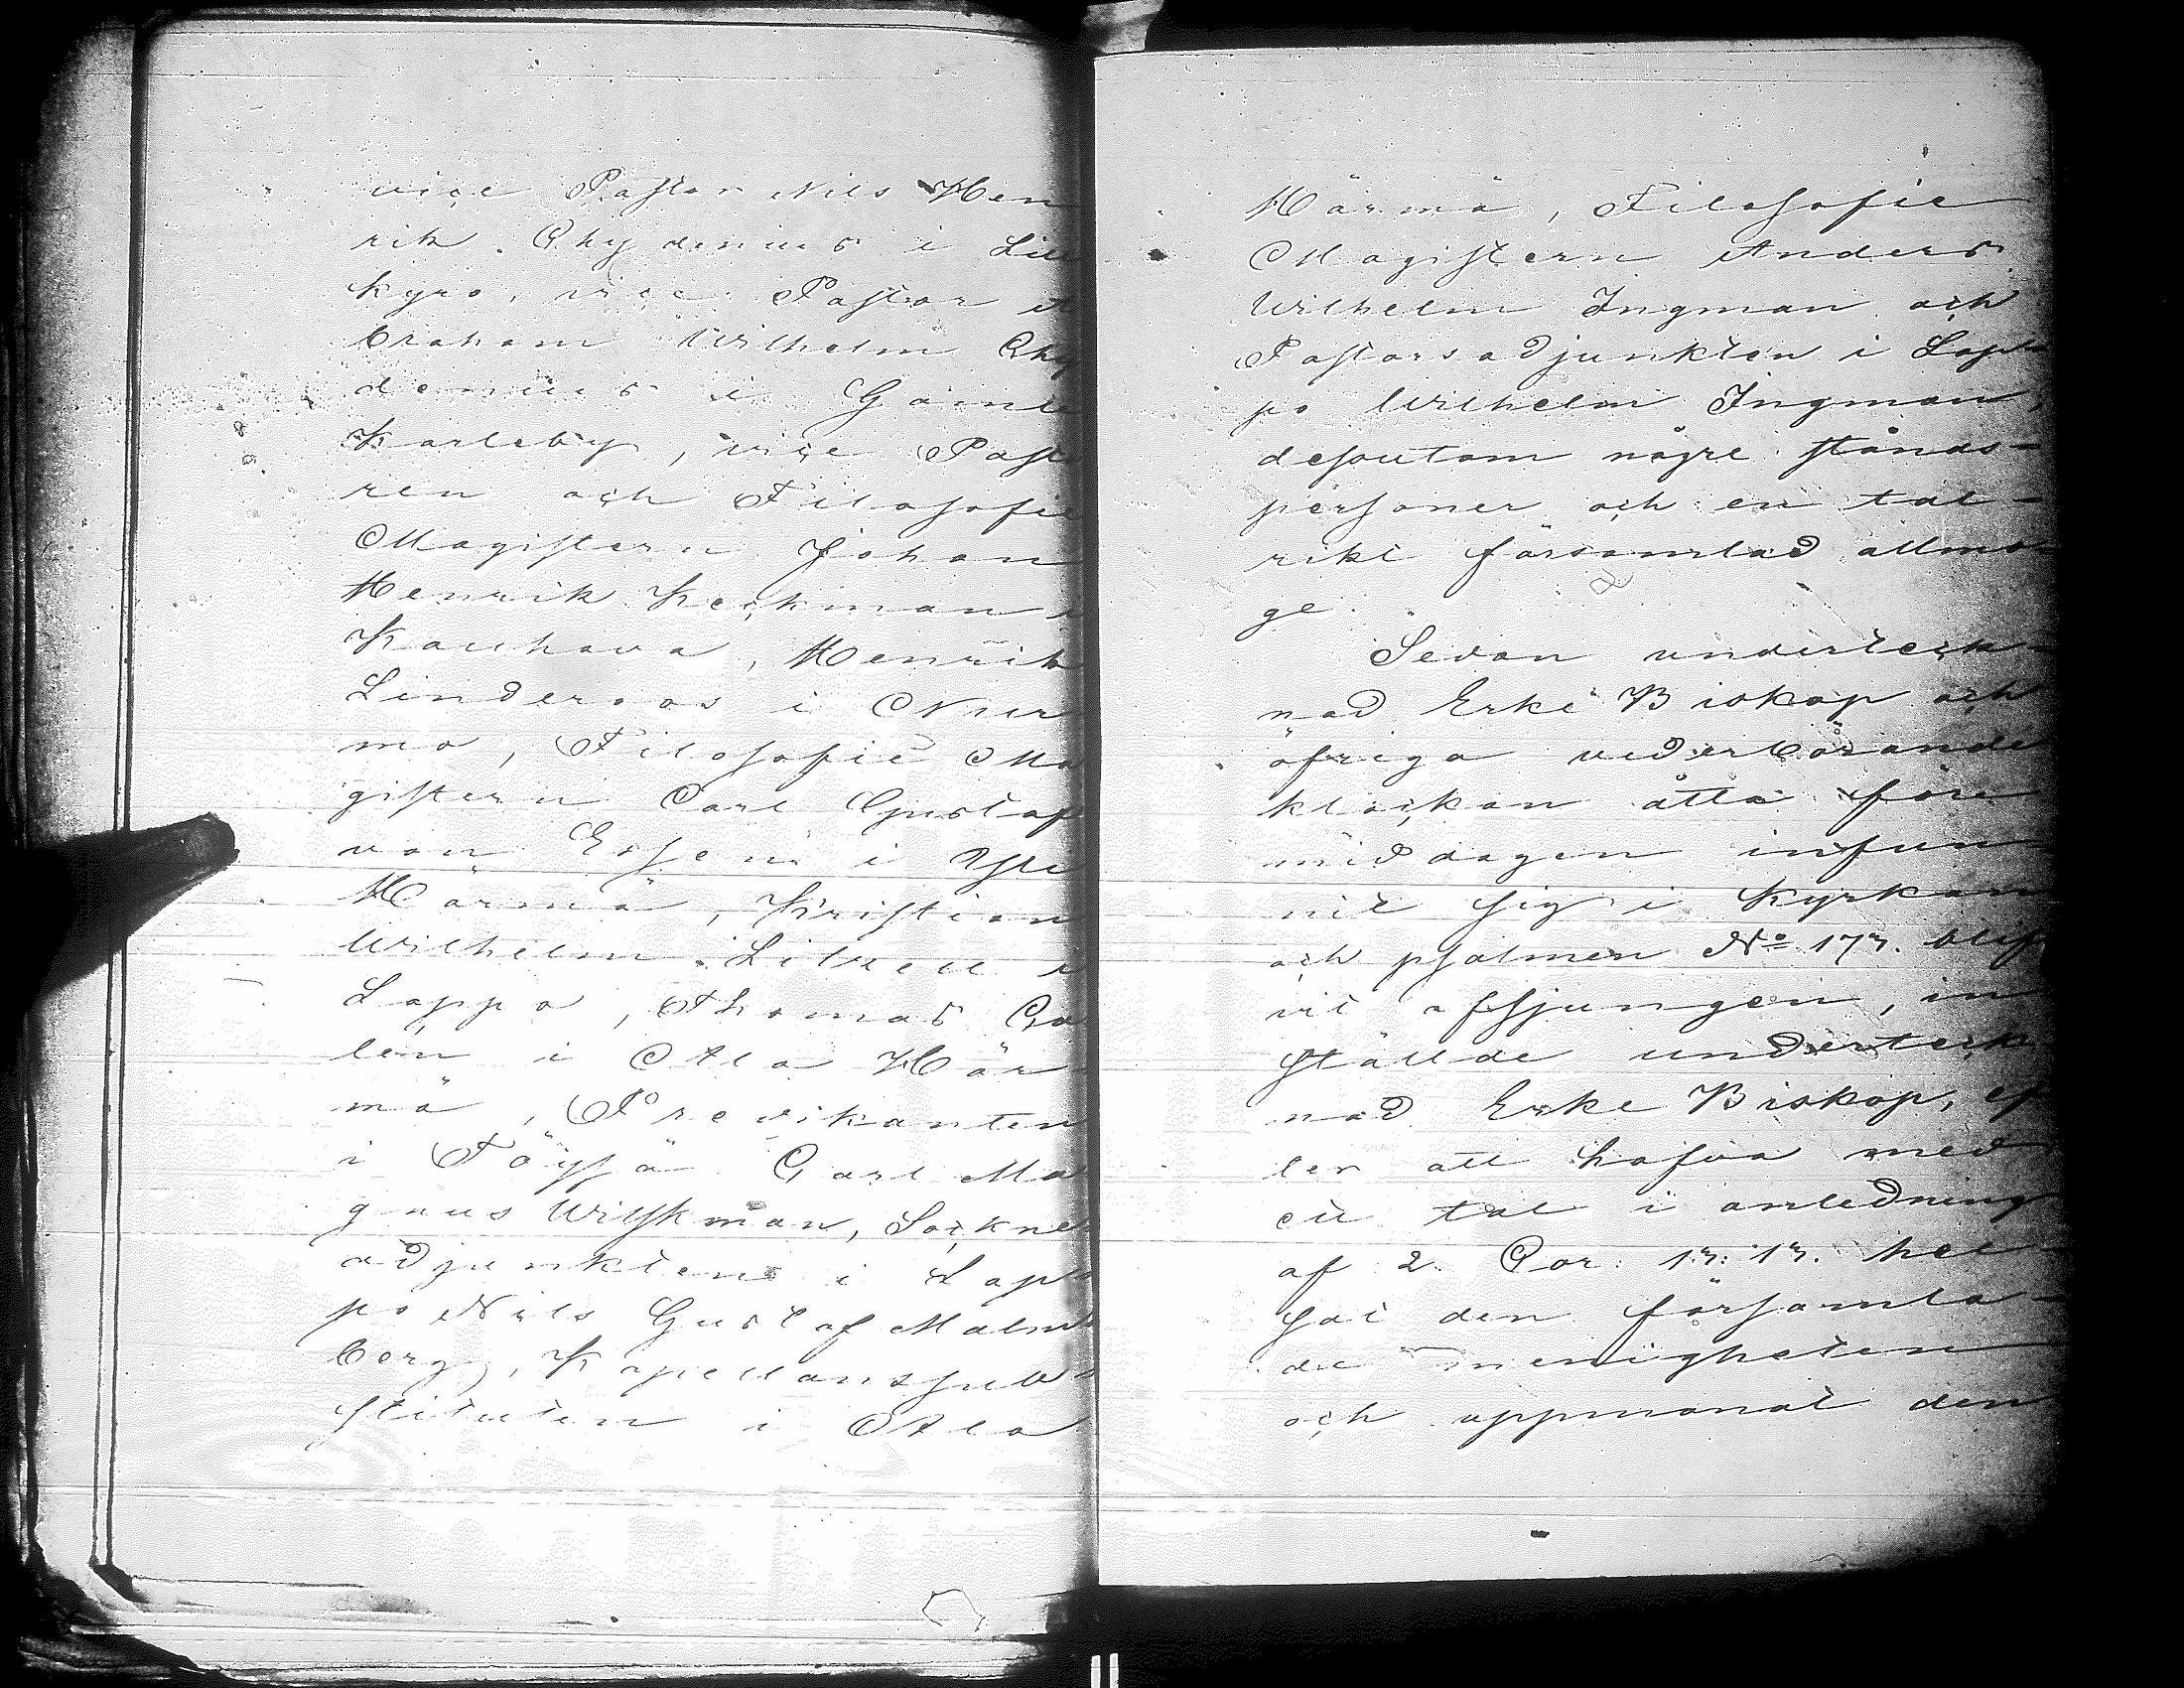 vice Pastor Nils Hen
rik Chydenius i Lill
kyro, vice Pastor A
braham Wilhelm Chy
denius i Gamle
Karleby, vice Past
ren och Filosofie
Magistern Johan
Henrik Keckman i
Kauhava, Henrik
Linderoos i Nur
mo, Filosofie Ma
gistern Carl Gustaf
von Essen i Yli
Härmä, Kristian
Wilhelm Litzell i
Lappo, Thomas Ca
len i Ala Här
mä, Predikanten
i Töysä Carl Ma
gnus Wilskman, Sockne
adjunkten i Lap
po Nils Gustaf Malm
berg, Kapellanssub
stituten i Ala
Härmä, Filosofie
Magistern Anders
Wilhelm Ingman och
Pastorsadjunkten i Lap
po Wilhelm Ingman,
desutom någre stånds-
personer och en tal-
rikt församlad allmo
ge.
Sedan underteck-
nad Erke Biskop och
öfriga vederbörande
klockan åtta före
middagen infun
nit sig i Kyrkan
och psalmen No 177. blif
vit afsjungen, in
ställde underteck
nad Erke Biskop, ef
ter att hafva med
ett tal i anledning
af 2. Cor. 13: 13. hel
sat den församla-
de menigheten
och uppmanat den